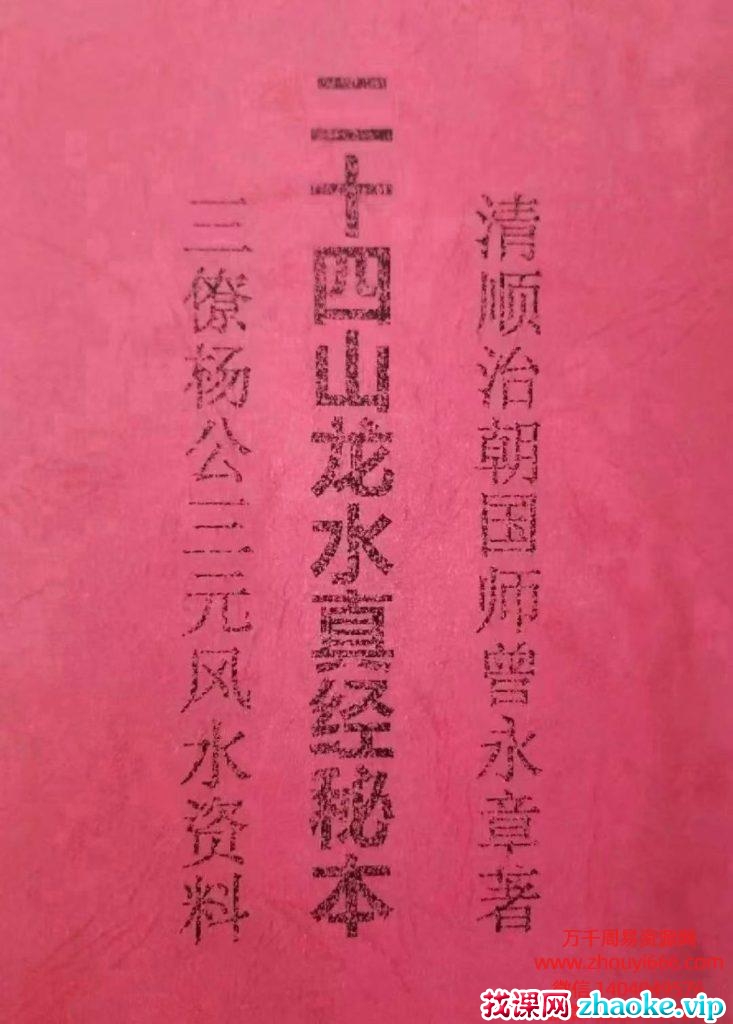 清顺治朝国师曾永章著
二十四山龙水真经秘本
三僚杨公三元风水资料
万千周易资源网
www.zhouyi666.com
找课网 zhaoke.vip